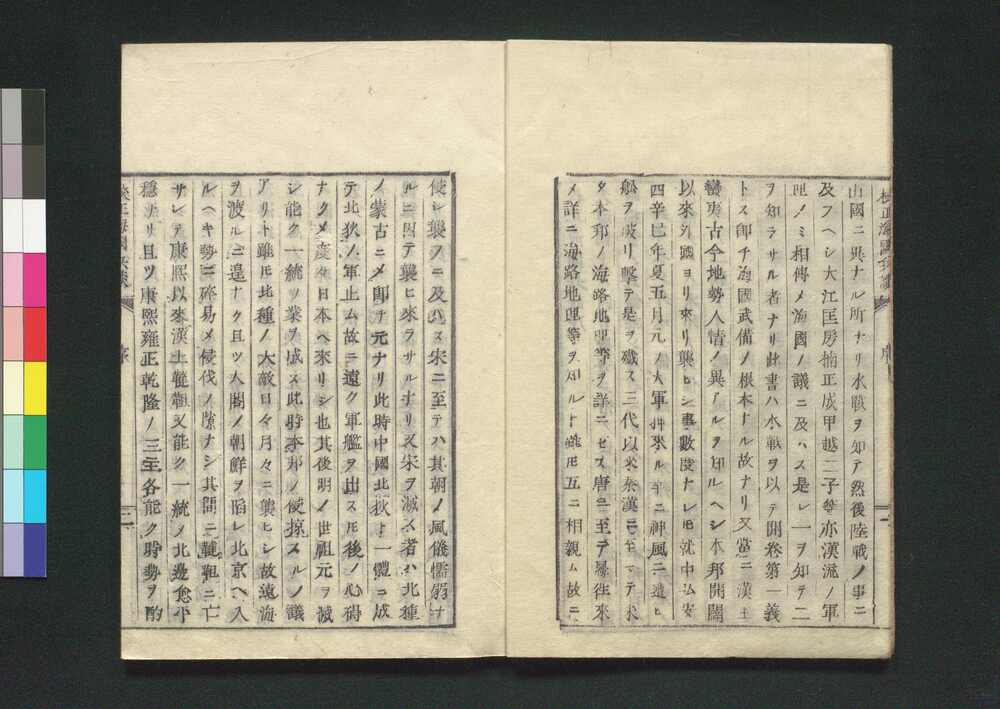 校正海國兵談
序
二
山國ニ異ナル所ナリ水戰ヲ知テ然後陸戰ノ事ニ
及フヘシ大江匡房楠正成甲越二子等亦漢流ノ軍
理ノミ相傳メ海國ノ議ニ及ハス是レ一ヲ知テ二
ヲ知ラサル者ナリ此書ハ水戰ヲ以テ開卷第一義
トス即チ海國武備ノ根本ナル故ナリ又當ニ漢土
蠻夷古今地勢人情ノ異アルヲ知ルヘシ本邦開闢
以來外國ヨリ來リ襲ヒシ事數度ナレ𪜈就中弘安
四辛巳年夏五月元ノ大軍押來ル幸ニ神風ニ遭ヒ
船ヲ破リ擊テ是ヲ殲ス三代以來秦漢ニ至マテ未
タ本邦ノ海路地理等ヲ詳ニセス唐ニ至テ屢往來
メ詳ニ海路地理等ヲ知ルト雖𪜈互ニ相親ム故ニ
侵シ襲フニ及ハス宋ニ至テハ其朝ノ風儀懦弱ナ
ルニ因テ襲ヒ來ラサルナリ又宋ヲ滅ス者ハ北種
ノ蒙古ニメ即チ元ナリ此時中國北狄ト一體ニ成
テ北狄ノ軍止ム故ニ遠ク軍艦ヲ出スモ後ノ心碍
ナクメ度々日本ヘ來リシ也其後明ノ世祖元ヲ滅
シ能ク一統ノ業ヲ成ス此時本邦ノ侵掠スルノ議
アリト雖𪜈北種ノ大敵日々月々ニ襲ヒシ故遠海
ヲ渡ルニ遑ナク且ツ大閤ノ朝鮮ヲ陷レ北京ヘ入
ルヘキ勢ニ辟易メ侵伐ノ隙ナシ其間ニ韃靼ニ亡
サレテ康熙以來漢土韃靼又能ク一統ノ北邊愈平
穩ナリ且ツ康熙雍正乾隆ノ三主各能ク時勢ヲ酌
校正海國兵談
序
三